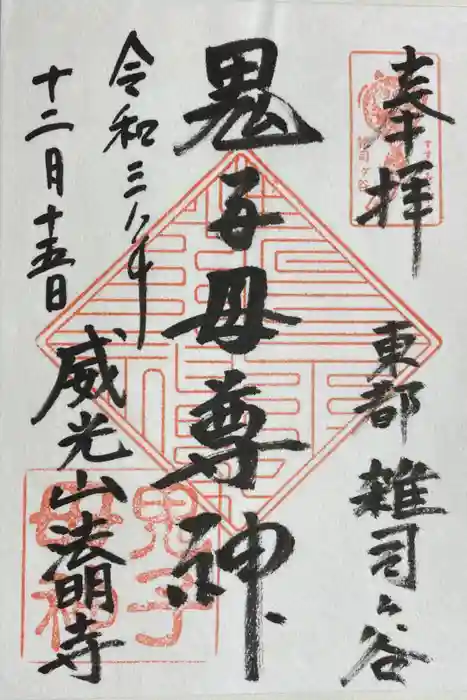 奉拝
東都 雑司ヶ谷
鬼子母尊神
令和三年
十二月十五日
威光山法明寺
鬼子
母神